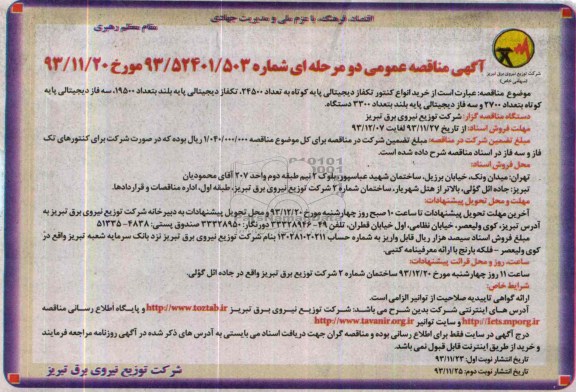 اقتصاد، فرهنگ، با عزم ملی و مدیریت جهادی
مقام معظم رهبری
شرکت توزیع نیروی برق تبریز
(سهامی خاص)
آگهی مناقصه عمومی دو مرحله ای شماره ۹۳/۵۲۴۰۱/۵۰۳ مورخ ۹۳/۱۱/۲۰
موضوع مناقصه: عبارت است از خرید انواع کنتور تکفاز دیجیتالی پایه کوتاه به تعداد ۲۴۵۰۰، تکفاز دیجیتالی پایه بلند بتعداد ۱۹۵۰۰، سه فاز دیجیتالی پایه
کوتاه بتعداد ۲۷۰۰ و سه فاز دیجیتالی پایه بلند بتعداد ۳۳۰۰ دستگاه.
دستگاه مناقصه گزار: شرکت توزیع نیروی برق تبریز
مهلت فروش اسناد: از تاریخ ۹۳/۱۱/۲۷ لغایت ۹۳/۱۲/۰۷
مبلغ تضمین شرکت در مناقصه: مبلغ تضمین شرکت در مناقصه برای کل موضوع مناقصه ۱/۰۴۰/۰۰۰/۰۰۰ ریال بوده که در صورت شرکت برای کنتورهای تک
فاز و سه فاز در اسناد مناقصه شرح داده شده است.
محل فروش اسناد:
تهران: میدان ونک، خیابان برزیل، ساختمان شهید عباسپور، بلوک ۲ نیم طبقه دوم واحد ۲۰۷ آقای محمودیان
تبریز: جاده ائل گؤلی، بالاتر از هتل شهریار، ساختمان شماره ۲ شرکت توزیع نیروی برق تبریز، طبقه اول، اداره مناقصات و قراردادها.
مهلت و محل تحویل پیشنهادات:
آخرین مهلت تحویل پیشنهادات تا ساعت ۱۰ صبح روز چهارشنبه مورخ ۹۳/۱۲/۲۰ و محل تحویل پیشنهادات به دبیرخانه شرکت توزیع نیروی برق تبریز به
آدرس تبریز، کوی ولیعصر، خیابان نظامی، اول خیابان فطران، تلفن ۴۹-۳۳۳۲۸۹۴۶ دورنگار: ۳۳۳۲۸۹۵۰ صندوق پستی: ۴۸۳۸-۵۱۳۳۵
مبلغ فروش اسناد سیصد هزار ریال قابل واریز به شماره حساب ۱۳۰۲۸۱۰۲۰۲۱۱ بنام شرکت توزیع نیروی برق تبریز نزد بانک سرمایه شعبه تبریز واقع در
کوی ولیعصر - فلکه بارنج با ارائه معرفینامه کتبی.
ساعت، روز و محل قرائت پیشنهادات:
ساعت ۱۱ روز چهارشنبه مورخ ۹۳/۱۲/۲۰ ساختمان شماره ۲ شرکت توزیع برق تبریز واقع در جاده ائل گؤلی.
شرایط خاص:
ارائه گواهی تاییدیه صلاحیت از توانیر الزامی است.
آدرس های اینترنتی شرکت بدین شرح می باشد: شرکت توزیع نیروی برق تبریز http://www.toztab.ir و پایگاه اطلاع رسانی مناقصه
http://iets.mporg.ir و سایت توانیر http://www.tavanir.org.ir
درج آگهی در سایت فقط برای اطلاع رسانی بوده و مناقصه گران جهت دریافت اسناد می بایستی به آدرس های ذکر شده در آگهی روزنامه مراجعه فرمایند
و خرید از طریق اینترنت قابل قبول نمی باشد.
تاریخ انتشار نوبت اول: ۹۳/۱۱/۲۳
تاریخ انتشار نوبت دوم: ۹۳/۱۱/۲۵
شرکت توزیع نیروی برق تبریز